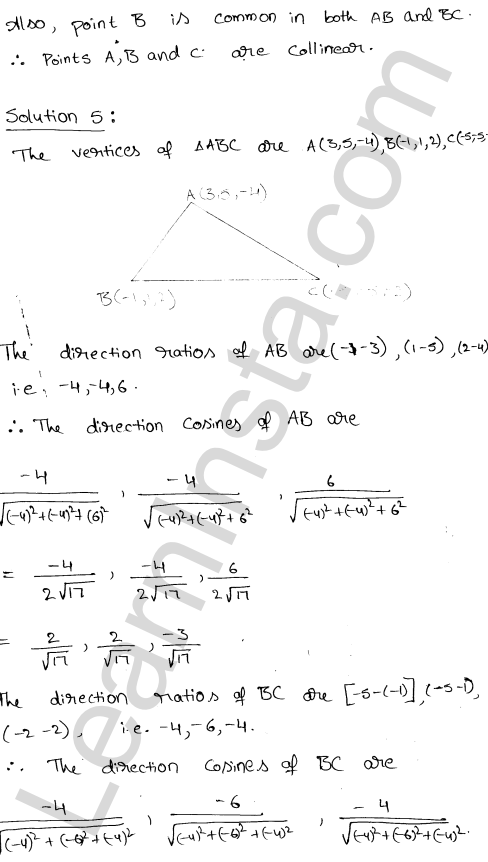 Also, point B is common in both AB and BC.
∴ Points A, B and C are collinear.
Solution 5:
The vertices of ΔABC are A(3,5,-4), B(-1,1,2), C(-5,-5,-
A(3,5,-4)
B(-1,1,2) C(
The direction ratios of AB are (-1-3), (1-5), (2-4)
i.e, -4,-4,6.
∴ The direction cosines of AB are
-4/√((-4)²+(-4)²+(6)²), -4/√((-4)²+(-4)²+6²), 6/√((-4)²+(-4)²+6²)
= -4/2√17, -4/2√17, 6/2√17
= 2/√17, 2/√17, -3/√17.
The direction ratios of BC are [-5-(-1)], (-5-1),
(-2-2), i.e. -4,-6,-4.
∴ The direction cosines of BC are
-4/√((-4)²+(-6)²+(-4)²), -6/√((-4)²+(-6)²+(-4)²), -4/√((-4)²+(-6)²+(-4)²).
LearnInsta.com